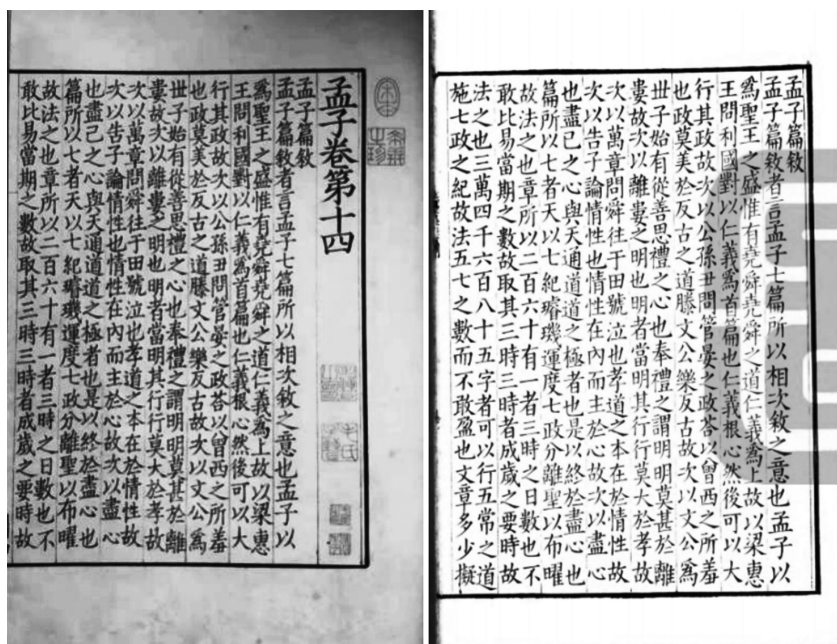 孟子卷第十四
孟子篇敘
孟子篇敘者言孟子七篇所以相次敘之意也孟子以
爲聖王之盛惟有堯舜堯舜之道仁義爲上故以梁惠
王問利國對以仁義爲首篇也仁義根心然後可以大
行其政故次以公孫丑問管晏之政荅以曾西之所羞
也政莫美於反古之道滕文公樂反古故次以文公爲
世子始有從善思禮之心也奉禮之謂明明莫甚於離
婁故次以離婁之明也明者當明其行行莫大於孝故
次以萬章問舜往于田號泣也孝道之本在於情性故
次以告子論情性也情性在內而主於心故次以盡心
也盡己之心與天通道道之極者也是以終於盡心也
篇所以七者天以七紀璿璣運度七政分離聖以布曜
故法之也章所以二百六十有一者三時之日數也不
敢比易當期之數故取其三時三時者成歲之要時故
宋本
希世之珍
毛氏
孟子篇敘
孟子篇敘者言孟子七篇所以相次敘之意也孟子以
爲聖王之盛惟有堯舜堯舜之道仁義爲上故以梁惠
王問利國對以仁義爲首篇也仁義根心然後可以大
行其政故次以公孫丑問管晏之政荅以曾西之所羞
也政莫美於反古之道滕文公樂反古故次以文公爲
世子始有從善思禮之心也奉禮之謂明明莫甚於離
婁故次以離婁之明也明者當明其行行莫大於孝故
次以萬章問舜往于田號泣也孝道之本在於情性故
次以告子論情性也情性在內而主於心故次以盡心
也盡己之心與天通道道之極者也是以終於盡心也
篇所以七者天以七紀璿璣運度七政分離聖以布曜
故法之也章所以二百六十有一者三時之日數也不
敢比易當期之數故取其三時三時者成歲之要時故
法之也三萬四千六百八十五字者可以行五常之道
施七政之紀故法五七之數而不敢盈也文章多少擬